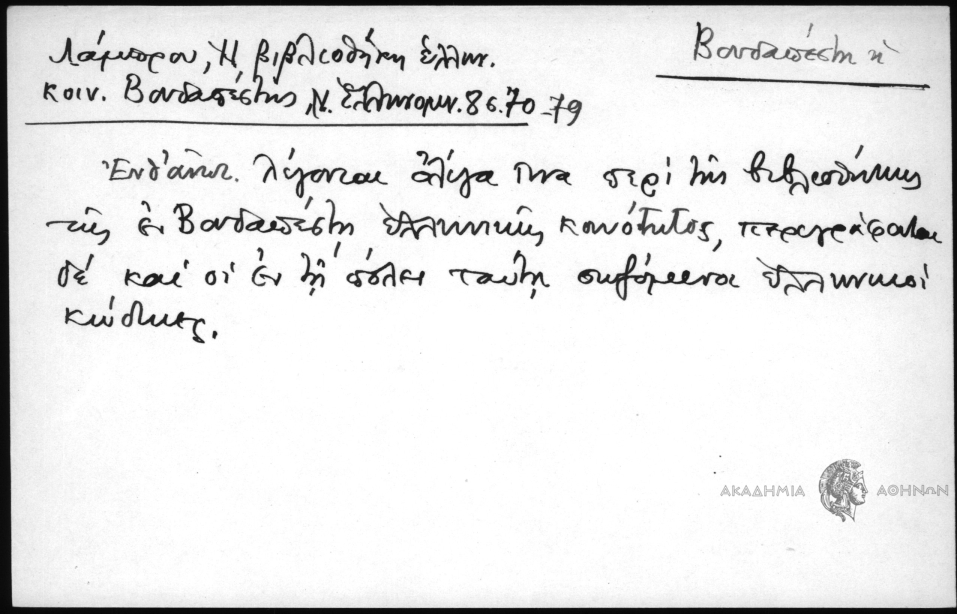 Βουδαπέστη ἡ
Λάμπρου, Ἡ βιβλιοθήκη ἑλλην.
κοιν. Βουδαπέστης, Ν. Ἑλληνομν. 8 σ. 70-79
Ἐνταῦθ. λέγονται ὀλίγα τινα περί τῆς βιβλιοθήκης
τῆς ἐν Βουδαπέστῃ ἑλληνικῆς κοινότητος, περιγράφονται
δέ καί οἱ ἐν τῇ πόλει ταύτῃ σῳζόμενοι ἑλληνικοί
κώδικες.
ΑΚΑΔΗΜΙΑ ΑΘΗΝΩΝ